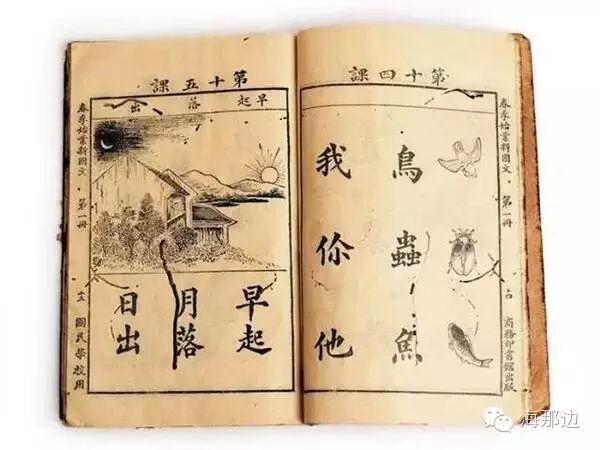 第十四課
鳥 蟲 魚
我 你 他
春季始業新國文 第一冊
商務印書館出版
第十五課
早起 落 出
早起
月落
日出
春季始業新國文 第一冊
國民學校用
海那边